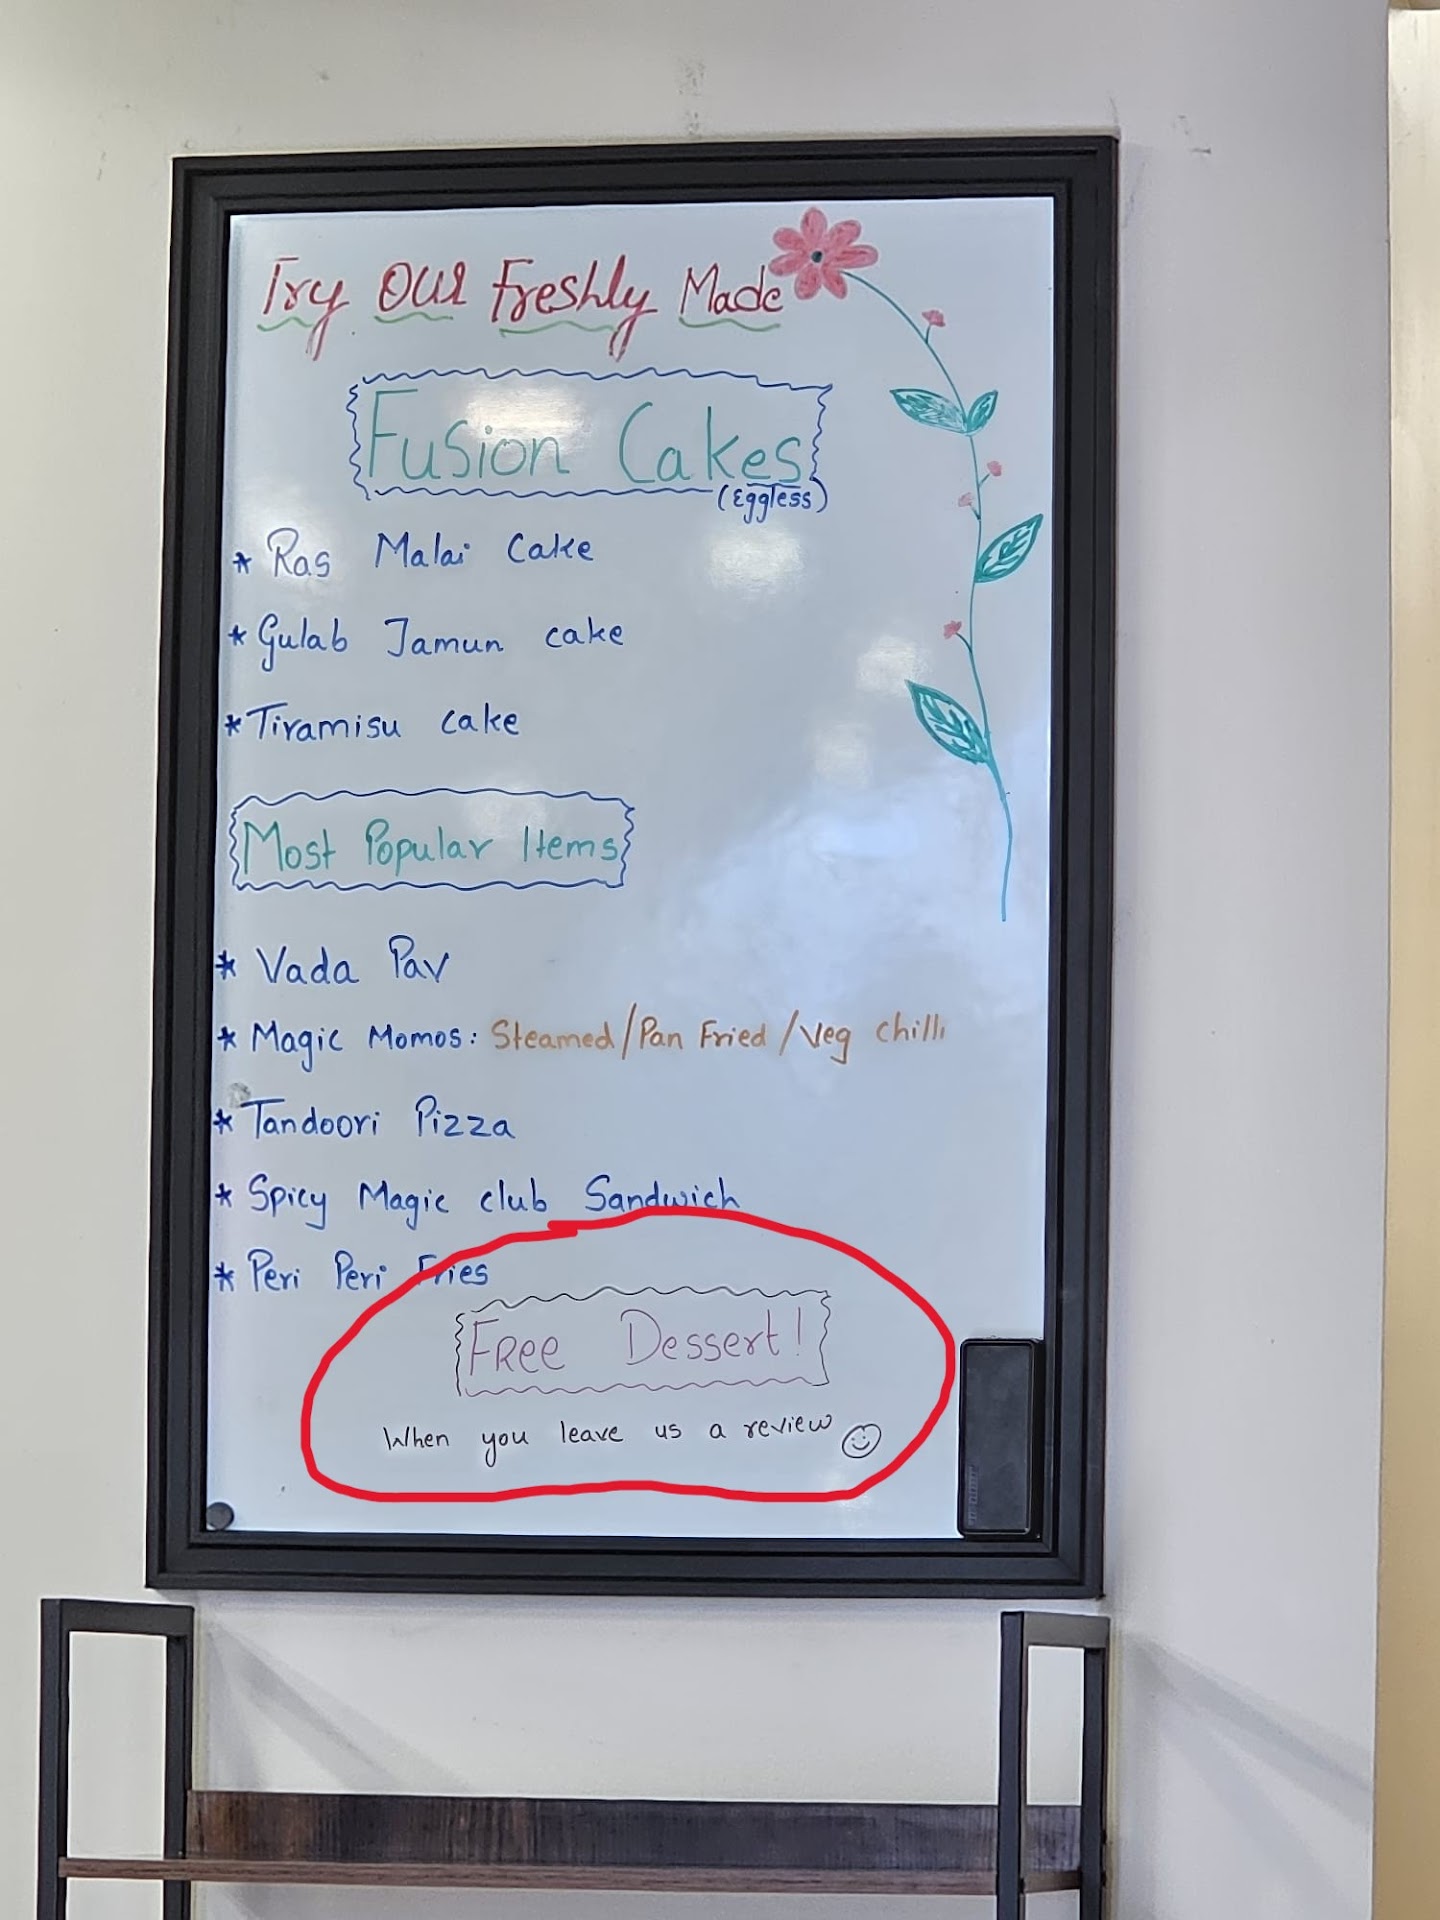 Try our Freshly Made
Fusion Cakes
(Eggless)
* Ras Malai Cake
* Gulab Jamun cake
* Tiramisu cake
Most Popular Items
* Vada Pav
* Magic Momos: Steamed/Pan Fried/Veg chilli
* Tandoori Pizza
* Spicy Magic club Sandwich
* Peri Peri Fries
Free Dessert!
When you leave us a review